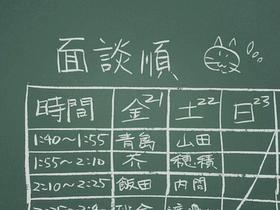 面談順
時間 金21 土22 日23
1:40〜1:55 青島 山田
1:55〜2:10 芥 穂積
2:10〜2:25 飯田 内間